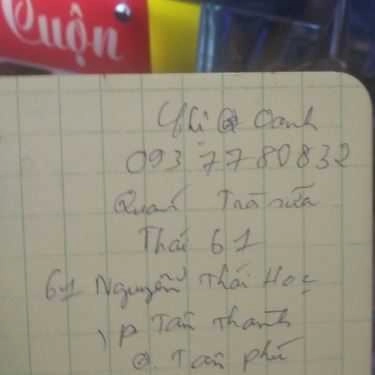 Cuộn
Chị Oanh
093 7780832
Quán Trà sữa
Thái 61
61 Nguyễn Thái Học
P Tân Thành
Q. Tân phú